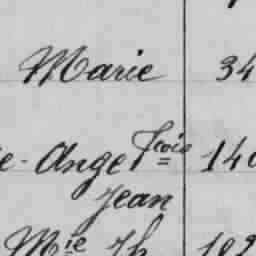 Marie 34
e-Ange Fcois 140
Jean
Mie Jh 102